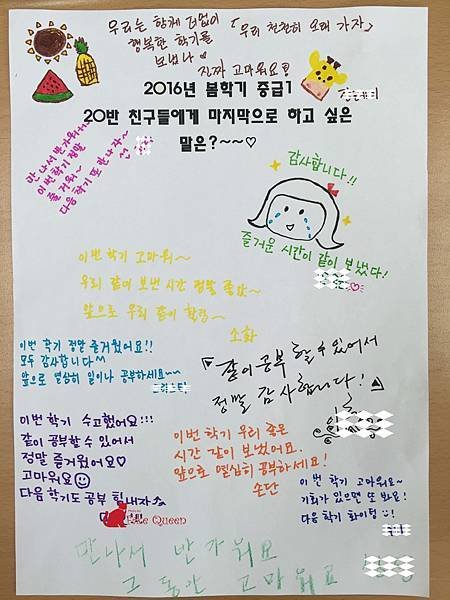 우리는 함께 더없이
행복한 학기를
보냈다
「우리 천천히 오래 가자」
진짜 고마워요!
2016년 봄학기 중급1
20반 친구들에게 마지막으로 하고 싶은
말은?~~♡
만나서 반가워요
이번 학기 정말
즐거워~
다음 학기 또 만나자~
감사합니다!!
즐거운 시간이 같이 보냈다!
이번 학기 고마워~
우리 같이 보낸 시간 정말 좋았~
앞으로 우리 같이 힘링~
소화
이번 학기 정말 즐거웠어요!!
모두 감사합니다^^
앞으로 열심히 일이나 공부하세요~~
크리스틴
같이 공부할 수 있어서
정말 감사합니다!
이번 학기 수고했어요!!!
같이 공부할 수 있어서
정말 즐거웠어요♡
고마워요☺
다음 학기도 공부 힘내자
이번 학기 우리 좋은
시간 같이 보냈어요.
앞으로 열심히 공부하세요!
손단
이번 학기 고마워요~
기회가 있으면 또 봐요!
다음 학기 화이팅 :)
Queen
만나서 반가워요
그동안 고마워요